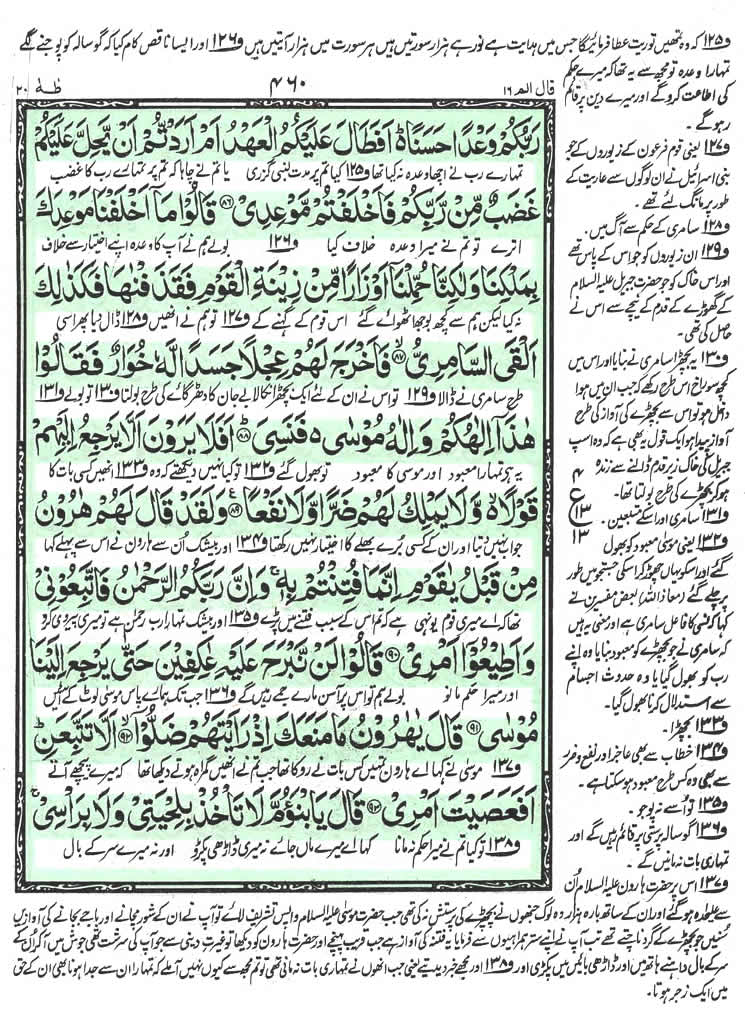 و۱۲۵ کہ وہ تمھیں توریت عطا فرمائیگا جس میں ہدایت ہے نور ہے ہزار سورتیں ہیں ہر سورت میں ہزار آیتیں ہیں و۱۲۶ اور ایسا ناقص کام کیا کہ گوسالہ کو پوجنے لگے
قال الم ١٦
۴۶۰
طٰہٰ ۲۰
رَبُّكُمْ وَعْدًا حَسَنًا ەؕ اَفَطَالَ عَلَیْكُمُ الْعَهْدُ اَمْ اَرَدْتُّمْ اَنْ یَّحِلَّ عَلَیْكُمْ
تمہارے رب نے اچھا وعدہ نہ کیا تھا و۱۲۵ کیا تم پر مدت لمبی گزری یا تم نے چاہا کہ تم پر تمہارے رب کا غضب
غَضَبٌ مِّنْ رَّبِّكُمْ فَاَخْلَفْتُمْ مَّوْعِدِیْ ﴿۸۶﴾ قَالُوْا مَاۤ اَخْلَفْنَا مَوْعِدَكَ
اترے تو تم نے میرا وعدہ خلاف کیا و۱۲۶ بولے ہم نے آپ کا وعدہ اپنے اختیار سے خلاف
بِمَلْكِنَا وَلٰكِنَّا حُمِّلْنَاۤ اَوْزَارًا مِّنْ زِیْنَةِ الْقَوْمِ فَقَذَفْنٰهَا فَكَذٰلِكَ
نہ کیا لیکن ہم سے کچھ بوجھ اٹھوائے گئے اس قوم کے گہنے کے و۱۲۷ تو ہم نے انھیں و۱۲۸ ڈال دیا پھر اسی
اَلْقَی السَّامِرِیُّ ﴿۸۷﴾ فَاَخْرَجَ لَهُمْ عِجْلًا جَسَدًا لَّهٗ خُوَارٌ فَقَالُوْا
طرح سامری نے ڈالا و۱۲۹ تو اس نے ان کے لئے ایک بچھڑا نکالا بے جان کا دھڑ گائے کی طرح بولتا و۱۳۰ تو بولے و۱۳۱
هٰذَاۤ اِلٰهُكُمْ وَاِلٰهُ مُوْسٰی ە فَنَسِیَ ﴿۸۸﴾ اَفَلَا یَرَوْنَ اَلَّا یَرْجِعُ اِلَیْهِمْ
یہ ہے تمہارا معبود اور موسیٰ کا معبود تو بھول گئے و۱۳۲ تو کیا نہیں دیکھتے کہ وہ و۱۳۳ انھیں کسی بات کا
قَوْلًا ەۙ وَّلَا یَمْلِكُ لَهُمْ ضَرًّا وَّلَا نَفْعًا ﴿۸۹﴾ وَلَقَدْ قَالَ لَهُمْ هٰرُوْنُ
جواب نہیں دیتا اور ان کے کسی برے بھلے کا اختیار نہیں رکھتا و۱۳۴ اور بیشک اُن سے ہارون نے اس سے پہلے کہا
مِنْ قَبْلُ یٰقَوْمِ اِنَّمَا فُتِنْتُمْ بِهٖ ۚ وَاِنَّ رَبَّكُمُ الرَّحْمٰنُ فَاتَّبِعُوْنِیْ
تھا کہ اے میری قوم یونہی ہے کہ تم اس کے سبب فتنے میں پڑے و۱۳۵ اور بیشک تمہارا رب رحمٰن ہے تو میری پیروی کرو
وَاَطِیْعُوْۤا اَمْرِیْ ﴿۹۰﴾ قَالُوْا لَنْ نَّبْرَحَ عَلَیْهِ عٰكِفِیْنَ حَتّٰی یَرْجِعَ اِلَیْنَا
اور میرا حکم مانو بولے ہم تو اس پر آسن مارے جمے رہیں گے و۱۳۶ جب تک ہمارے پاس موسیٰ لوٹ کے آئیں
مُوْسٰی ﴿۹۱﴾ قَالَ یٰهٰرُوْنُ مَا مَنَعَكَ اِذْ رَاَیْتَهُمْ ضَلُّوْۤا ﴿۹۲﴾ اَلَّا تَتَّبِعَنِ ؕ
و۱۳۷ موسیٰ نے کہا اے ہارون تمہیں کس بات نے روکا تھا جب تم نے انھیں گمراہ ہوتے دیکھا تھا کہ میرے پیچھے آتے
اَفَعَصَیْتَ اَمْرِیْ ﴿۹۳﴾ قَالَ یَا بْنَؤُمَّ لَا تَاْخُذْ بِلِحْیَتِیْ وَلَا بِرَاْسِیْ ۚ
و۱۳۸ تو کیا تم نے میرا حکم نہ مانا کہا اے میرے ماں جائے نہ میری ڈاڑھی پکڑو اور نہ میرے سر کے بال
تمہارا وعدہ تو مجھ سے یہ تھا کہ میرے حکم
کی اطاعت کرو گے اور میرے دین پر قائم
رہو گے۔
و۱۲۷ یعنی قوم فرعون کے زیوروں کے جو
بنی اسرائیل نے ان لوگوں سے عاریت کے
طور پر مانگ لئے تھے۔
و۱۲۸ سامری کے حکم سے آگ میں۔
و۱۲۹ ان زیوروں کو جو اس کے پاس تھے
اور اس خاک کو جو حضرت جبریل علیہ السلام
کے گھوڑے کے قدم کے نیچے سے اس نے
حاصل کی تھی۔
و۱۳۰ یہ بچھڑا سامری نے بنایا اور اس میں
کچھ سوراخ اس طرح رکھے کہ جب ان میں ہوا
داخل ہو تو اس سے بچھڑے کی آواز کی طرح
آواز پیدا ہو ایک قول یہ بھی ہے کہ وہ اسپ
جبریل کی خاک زیر قدم ڈالنے سے زندہ
ہو کر بچھڑے کی طرح بولتا تھا۔
۴
ع
۱۳
۱۳
و۱۳۱ سامری اور اسکے متبعین۔
و۱۳۲ یعنی موسیٰ معبود کو بھول
گئے اور اسکو یہاں چھوڑ کر اسکی جستجو میں طور
پر چلے گئے (معاذ اللہ) بعض مفسرین نے
کہا کہ نسی کا فاعل سامری ہے اور معنی یہ ہیں
کہ سامری نے جو بچھڑے کو معبود بنایا وہ اپنے
رب کو بھول گیا یا وہ حدوث اجسام
سے استدلال کرنا بھول گیا۔
و۱۳۳ بچھڑا۔
و۱۳۴ خطاب سے بھی عاجز اور نفع و ضرر
سے بھی وہ کس طرح معبود ہو سکتا ہے۔
و۱۳۵ تو اُسے نہ پوجو۔
و۱۳۶ گوسالہ پرستی پر قائم رہیں گے اور
تمہاری بات نہ مانیں گے۔
و۱۳۷ اس پر حضرت ہارون علیہ السلام اُن
سے علیحدہ ہو گئے اور ان کے ساتھ بارہ ہزار وہ لوگ جنھوں نے بچھڑے کی پرستش نہ کی تھی جب حضرت موسیٰ علیہ السلام واپس تشریف لائے تو آپ نے ان کے شور مچانے اور باجے بجانے کی آوازیں
سنیں جو بچھڑے کے گرد ناچتے تھے تب آپ نے اپنے ستر ہمراہیوں سے فرمایا یہ فتنہ کی آواز ہے جب قریب پہنچے اور حضرت ہارون کو دیکھا تو غیرتِ دینی سے جو آپ کی سرشت تھی جوش میں آکر ان کے
سر کے بال داہنے ہاتھ میں اور ڈاڑھی بائیں میں پکڑی اور و۱۳۸ اور مجھے خبر دیدیتے یعنی جب انھوں نے تمہاری بات نہ مانی تھی تو تم مجھ سے کیوں نہیں آ ملے کہ تمہارا ان سے جدا ہونا بھی ان کے حق
میں ایک زجر ہوتا۔